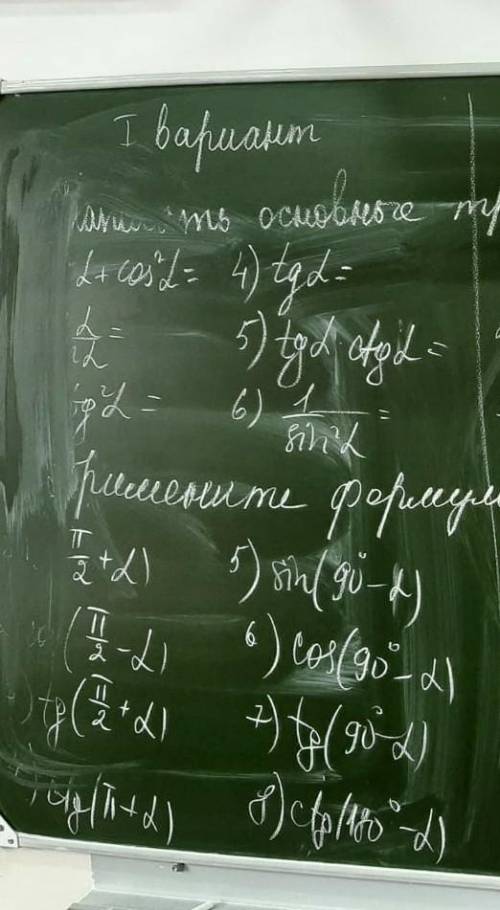 I вариант
основные
α + cos²α = 4) tgα =
α/α = 5) tgα ctgα =
tg²α = 6) 1/sin²α =
римените формул
π/2 + α) 5) sin(90° - α)
(π/2 - α) 6) cos(90° - α)
tg(π/2 + α) 7) tg(90° - α)
ctg(π + α) 8) ctg(180° - α)